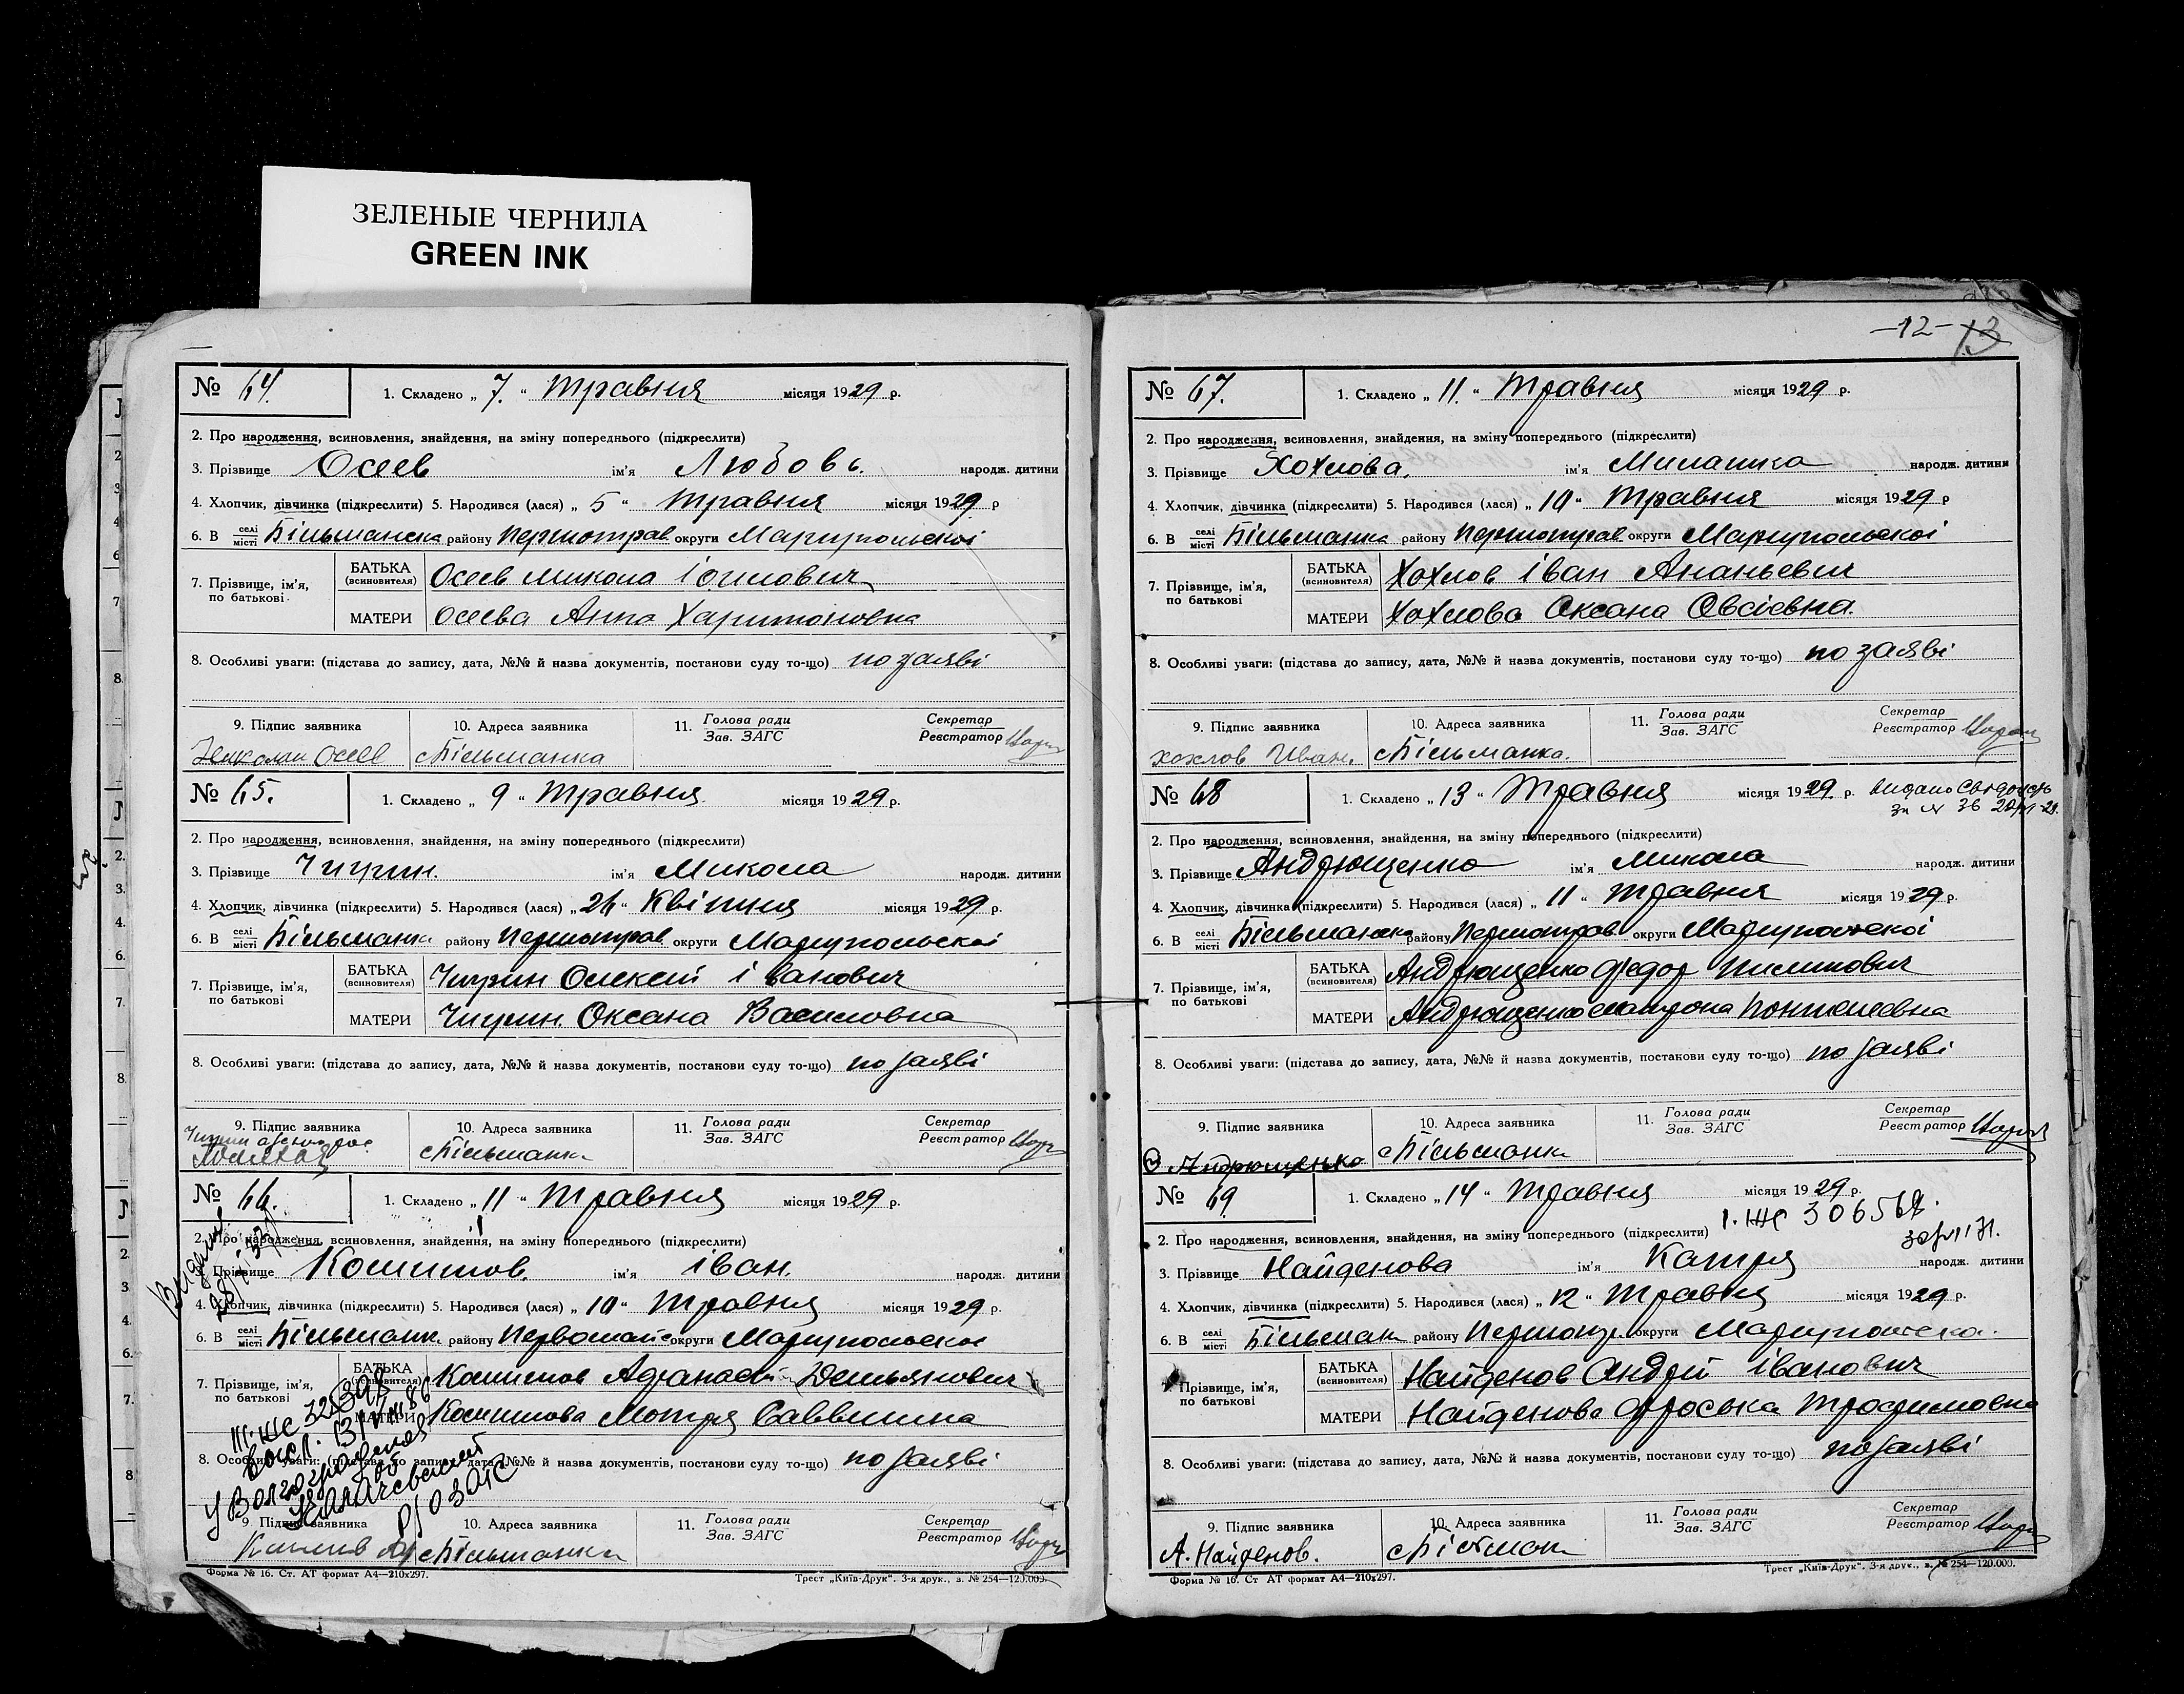 ЗЕЛЕНЫЕ ЧЕРНИЛА
GREEN INK
№ 64.
1. Складено „ 7. “ Травня місяця 1929 р.
2. Про народження, всиновлення, знайдення, на зміну попереднього (підкреслити)
3. Прізвище Осеев ім'я Любовь. народж. дитини
4. Хлопчик, дівчинка (підкреслити) 5. Народився (лася) „ 5 “ Травня місяця 1929 р
6. В селі місті Більманска району Першотрав округи Маріупольскої
7. Прізвище, ім'я, по батькові
БАТЬКА (всиновителя) Осеев Микола
МАТЕРИ Осеева Анна Харитоновна
8. Особливі уваги: (підстава до запису, дата, №№ й назва документів, постанови суду то-що) по заяві
9. Підпис заявника Николай Осеев
10. Адреса заявника с Більманка
11. Голова ради Зав. ЗАГС
Секретар Реєстратор
№ 65.
1. Складено „ 9 “ Травня місяця 1929 р.
2. Про народження, всиновлення, знайдення, на зміну попереднього (підкреслити)
3. Прізвище Чирин. ім'я Микола народж. дитини
4. Хлопчик, дівчинка (підкреслити) 5. Народився (лася) „ 26 “ Квітня місяця 1929 р.
6. В селі місті Більманка району Першотрав округи Маріупольскої
7. Прізвище, ім'я, по батькові
БАТЬКА (всиновителя) Чирин Олексій Іванович
МАТЕРИ Чирин. Оксана Василовна
8. Особливі уваги: (підстава до запису, дата, №№ й назва документів, постанови суду то-що) по заяві
9. Підпис заявника
10. Адреса заявника с Більманка
11. Голова ради Зав. ЗАГС
Секретар Реєстратор
№ 66.
1. Складено „ 11 “ Травня місяця 1929 р.
2. Про народження, всиновлення, знайдення, на зміну попереднього (підкреслити)
3. Прізвище Кошишов. ім'я Іван. народж. дитини
4. Хлопчик, дівчинка (підкреслити) 5. Народився (лася) „ 10 “ Травня місяця 1929 р.
6. В селі місті Більманк. району Первомайс округи Маріупольскої
7. Прізвище, ім'я, по батькові
БАТЬКА (всиновителя) Кошишов Афанасій Демьянович
МАТЕРИ Кошишова Мотря Саввишна
8. Особливі уваги: (підстава до запису, дата, №№ й назва документів, постанови суду то-що) по заяві
9. Підпис заявника
10. Адреса заявника с Більманка
11. Голова ради Зав. ЗАГС
Секретар Реєстратор
Форма № 16. Ст. АТ формат А4—210х297.
Трест „Київ-Друк“. 3-я друк., з. № 254—120.000.
—12— 13
№ 67.
1. Складено „ 11. “ Травня місяця 1929 р.
2. Про народження, всиновлення, знайдення, на зміну попереднього (підкреслити)
3. Прізвище Хохлова. ім'я Милашка народж. дитини
4. Хлопчик, дівчинка (підкреслити) 5. Народився (лася) „ 10 “ Травня місяця 1929 р
6. В селі місті Більманка району Першотрав округи Маріупольскої
7. Прізвище, ім'я, по батькові
БАТЬКА (всиновителя) Хохлов Іван Ананьевич
МАТЕРИ Хохлова Оксана Овсіевна.
8. Особливі уваги: (підстава до запису, дата, №№ й назва документів, постанови суду то-що) по заяві
9. Підпис заявника хохлов Иван.
10. Адреса заявника с Більманка.
11. Голова ради Зав. ЗАГС
Секретар Реєстратор
№ 68
1. Складено „ 13 “ Травня місяця 1929 р.
2. Про народження, всиновлення, знайдення, на зміну попереднього (підкреслити)
3. Прізвище Андрющенко ім'я Микола народж. дитини
4. Хлопчик, дівчинка (підкреслити) 5. Народився (лася) „ 11 “ Травня місяця 1929 р.
6. В селі місті Більманска району Першотрав округи Маріупольскої
7. Прізвище, ім'я, по батькові
БАТЬКА (всиновителя) Андрющенко Федор Пилипович
МАТЕРИ Андрющенко Матрона Понтелеевна
8. Особливі уваги: (підстава до запису, дата, №№ й назва документів, постанови суду то-що) по заяві
9. Підпис заявника Андрющенько
10. Адреса заявника с Більманка
11. Голова ради Зав. ЗАГС
Секретар Реєстратор
№ 69
1. Складено „ 14 “ Травня місяця 1929 р.
2. Про народження, всиновлення, знайдення, на зміну попереднього (підкреслити)
3. Прізвище Найденова ім'я Катря народж. дитини
4. Хлопчик, дівчинка (підкреслити) 5. Народився (лася) „ 12 “ Травня місяця 1929 р.
6. В селі місті Більман району округи Маріупольска.
7. Прізвище, ім'я, по батькові
БАТЬКА (всиновителя) Найденов Андрій Іванович
МАТЕРИ Найденова Фроська Трофимовна
8. Особливі уваги: (підстава до запису, дата, №№ й назва документів, постанови суду то-що) по заяві
9. Підпис заявника А. Найденов.
10. Адреса заявника с Більман
11. Голова ради Зав. ЗАГС
Секретар Реєстратор
Форма № 16. Ст АТ формат А4—210х297.
Трест „Київ-Друк“. 3-я друк., з. № 254—120.000.